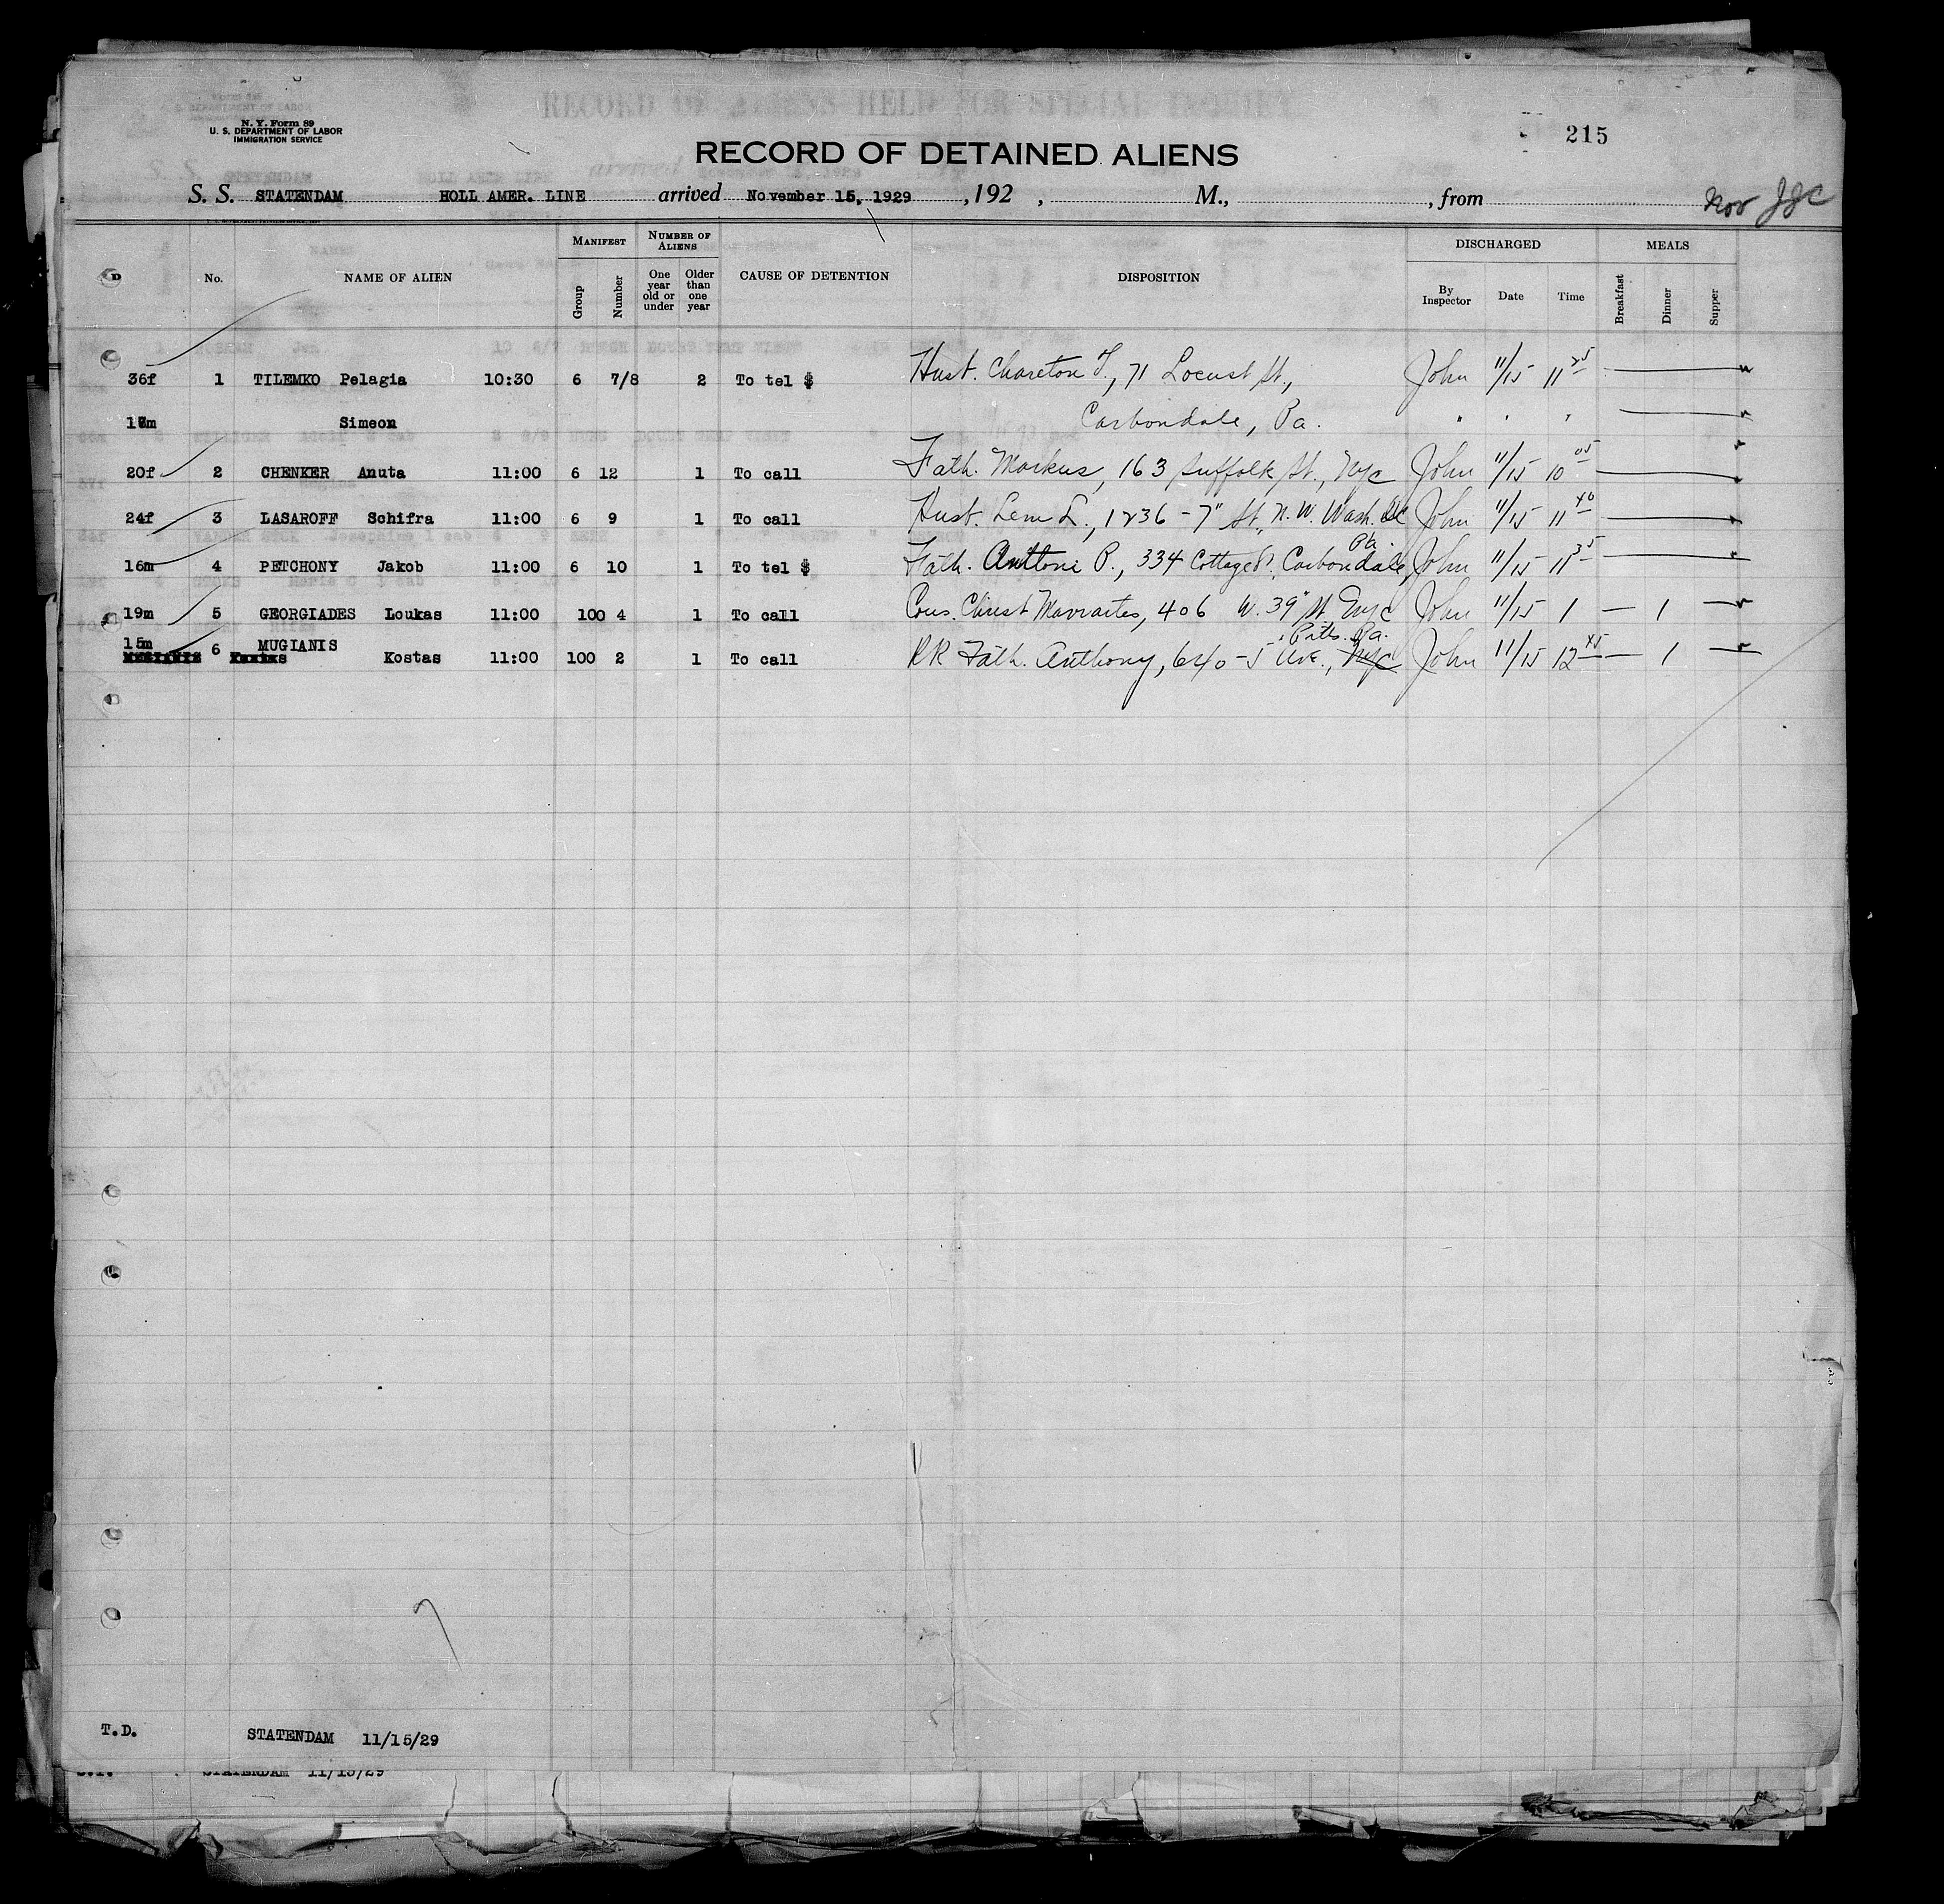 N. Y. Form 89
U. S. DEPARTMENT OF LABOR
IMMIGRATION SERVICE
215
RECORD OF DETAINED ALIENS
S. S. STATENDAM HOLL AMER. LINE arrived November 15, 1929 , 192 , M., , from
Nov
No. NAME OF ALIEN MANIFEST Group Number NUMBER OF ALIENS One year old or under Older than one year CAUSE OF DETENTION DISPOSITION DISCHARGED By Inspector Date Time MEALS Breakfast Dinner Supper
36f 1 TILEMKO Pelagia 10:30 6 7/8 2 To tel $ Husb. Chareton T., 71 Locust St., John 11/15 11 25
Simeon Carbondale, Pa. " " "
20f 2 CHENKER Anuta 11:00 6 12 1 To call Fath. Markus, 163 Suffolk St., Nyc John 11/15 10 05
24f 3 LASAROFF Schifra 11:00 6 9 1 To call Husb. Lem L., 1236 - 7" St. N. W. Wash. DC John 11/15 11 40
16m 4 PETCHONY Jakob 11:00 6 10 1 To tel $ Fath. Anttoni P., 334 Cottage St. Carbondale, Pa. John 11/15 11 35
19m 5 GEORGIADES Loukas 11:00 100 4 1 To call Cous. Christ 406 W. 39" St Nyc John 11/15 1 — 1 —
15m 6 MUGIANIS Kostas 11:00 100 2 1 To call RR Fath. Anthony, 640 - 5 Ave., Nyc Pitts. Pa. John 11/15 12 45 — 1 —
T.D. STATENDAM 11/15/29
STATENDAM 11/15/29